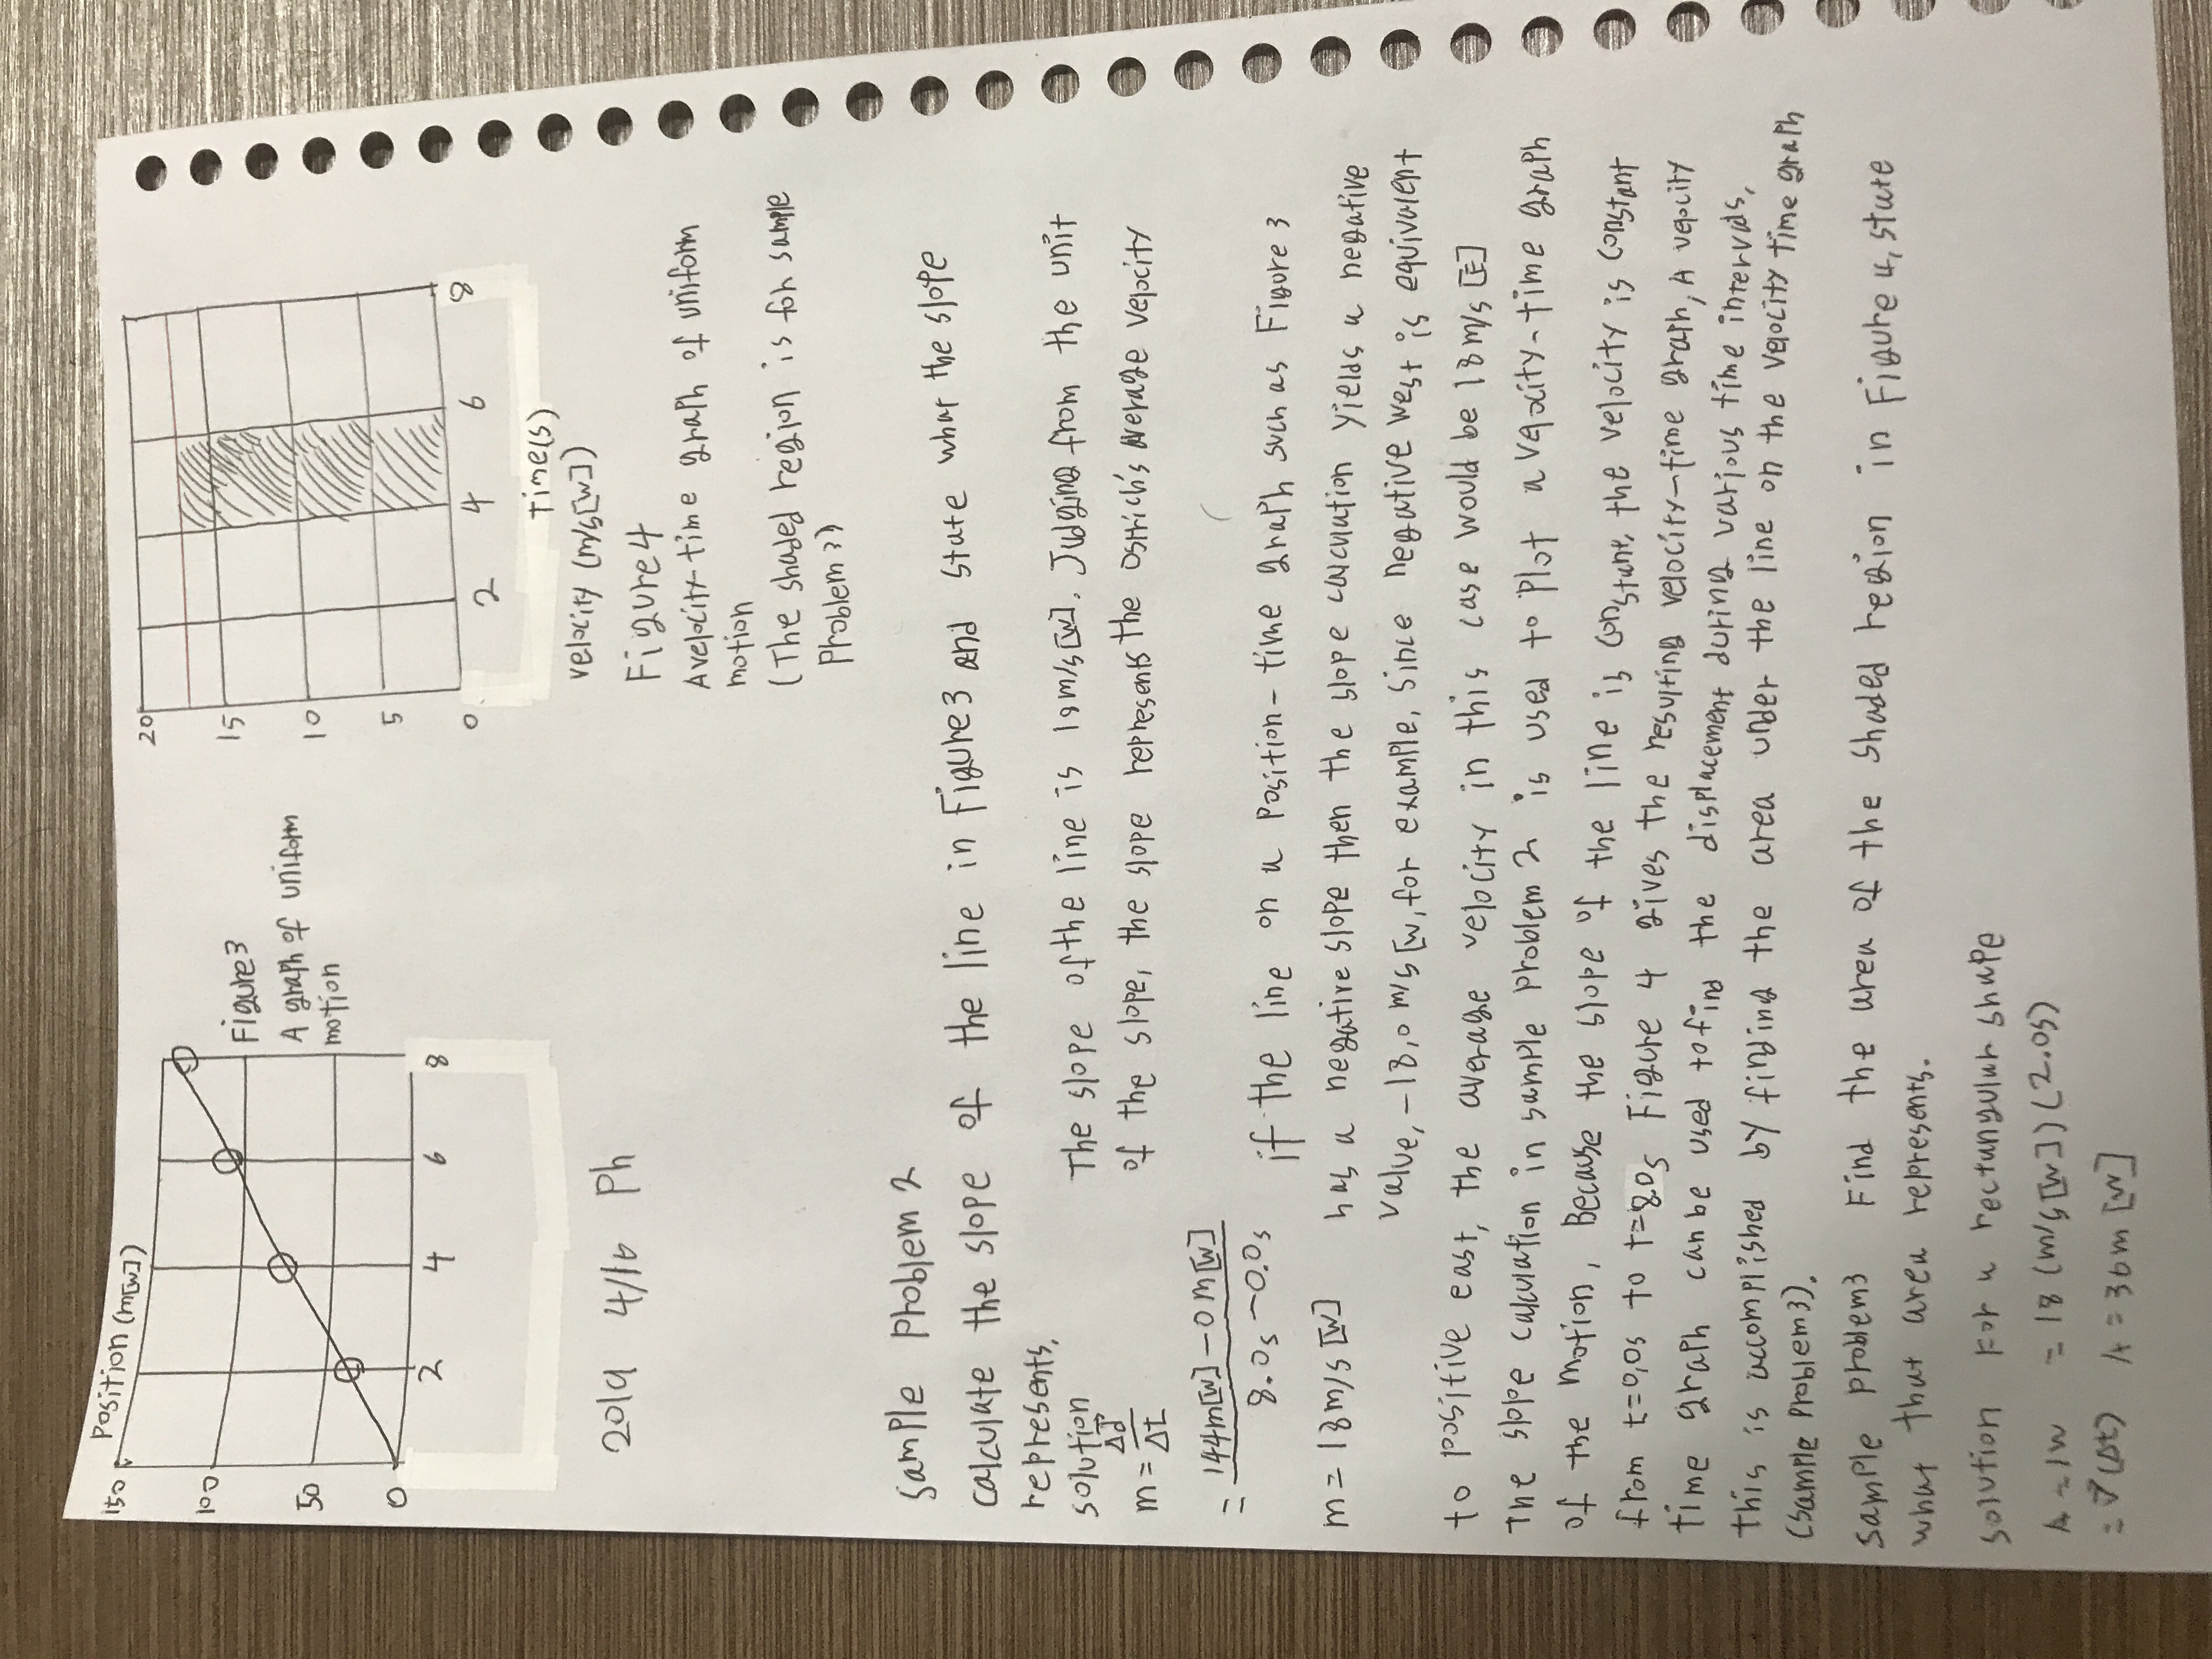 Position (m[w])
150
100
50
0
2
4
6
8
Figure3
A graph of uniform
motion
20
15
10
5
0
2
4
6
8
Time(s)
velocity (m/s[w])
Figure4
A velocity-time graph of uniform
motion
(The shaded region is for sample
Problem3)
2019 4/16 Ph
Sample Problem 2
calculate the slope of the line in Figure3 and state what the slope
represents.
solution
m = Δd / Δt
= 144m[w]-0m[w] / 8.0s-0.0s
m = 18m/s[w]
The slope of the line is 18m/s[w]. Judging from the unit
of the slope, the slope represents the ostrich's average velocity
if the line on a position-time graph such as Figure 3
has a negative slope then the slope calculation yields a negative
value, -18,0m/s[w, for example, since negative west is equivalent
to positive east, the average velocity in this case would be 18m/s[E]
The slope calculation in sample problem 2 is used to Plot a velocity-time graph
of the motion, Because the slope of the line is constant, the velocity is constant
from t=0,0s to t=8.0s Figure 4 gives the resulting velocity-time graph, A velocity
time graph can be used to find the displacement during various time intervals,
this is accomplished by finding the area under the line on the velocity time graph
(sample Problem3).
Sample problem3 Find the area of the shaded region in Figure 4, state
what that area represents.
solution For a rectangular shape
A = lw = 18(m/s[w])(2.0s)
= v(Δt) A = 36m[w]